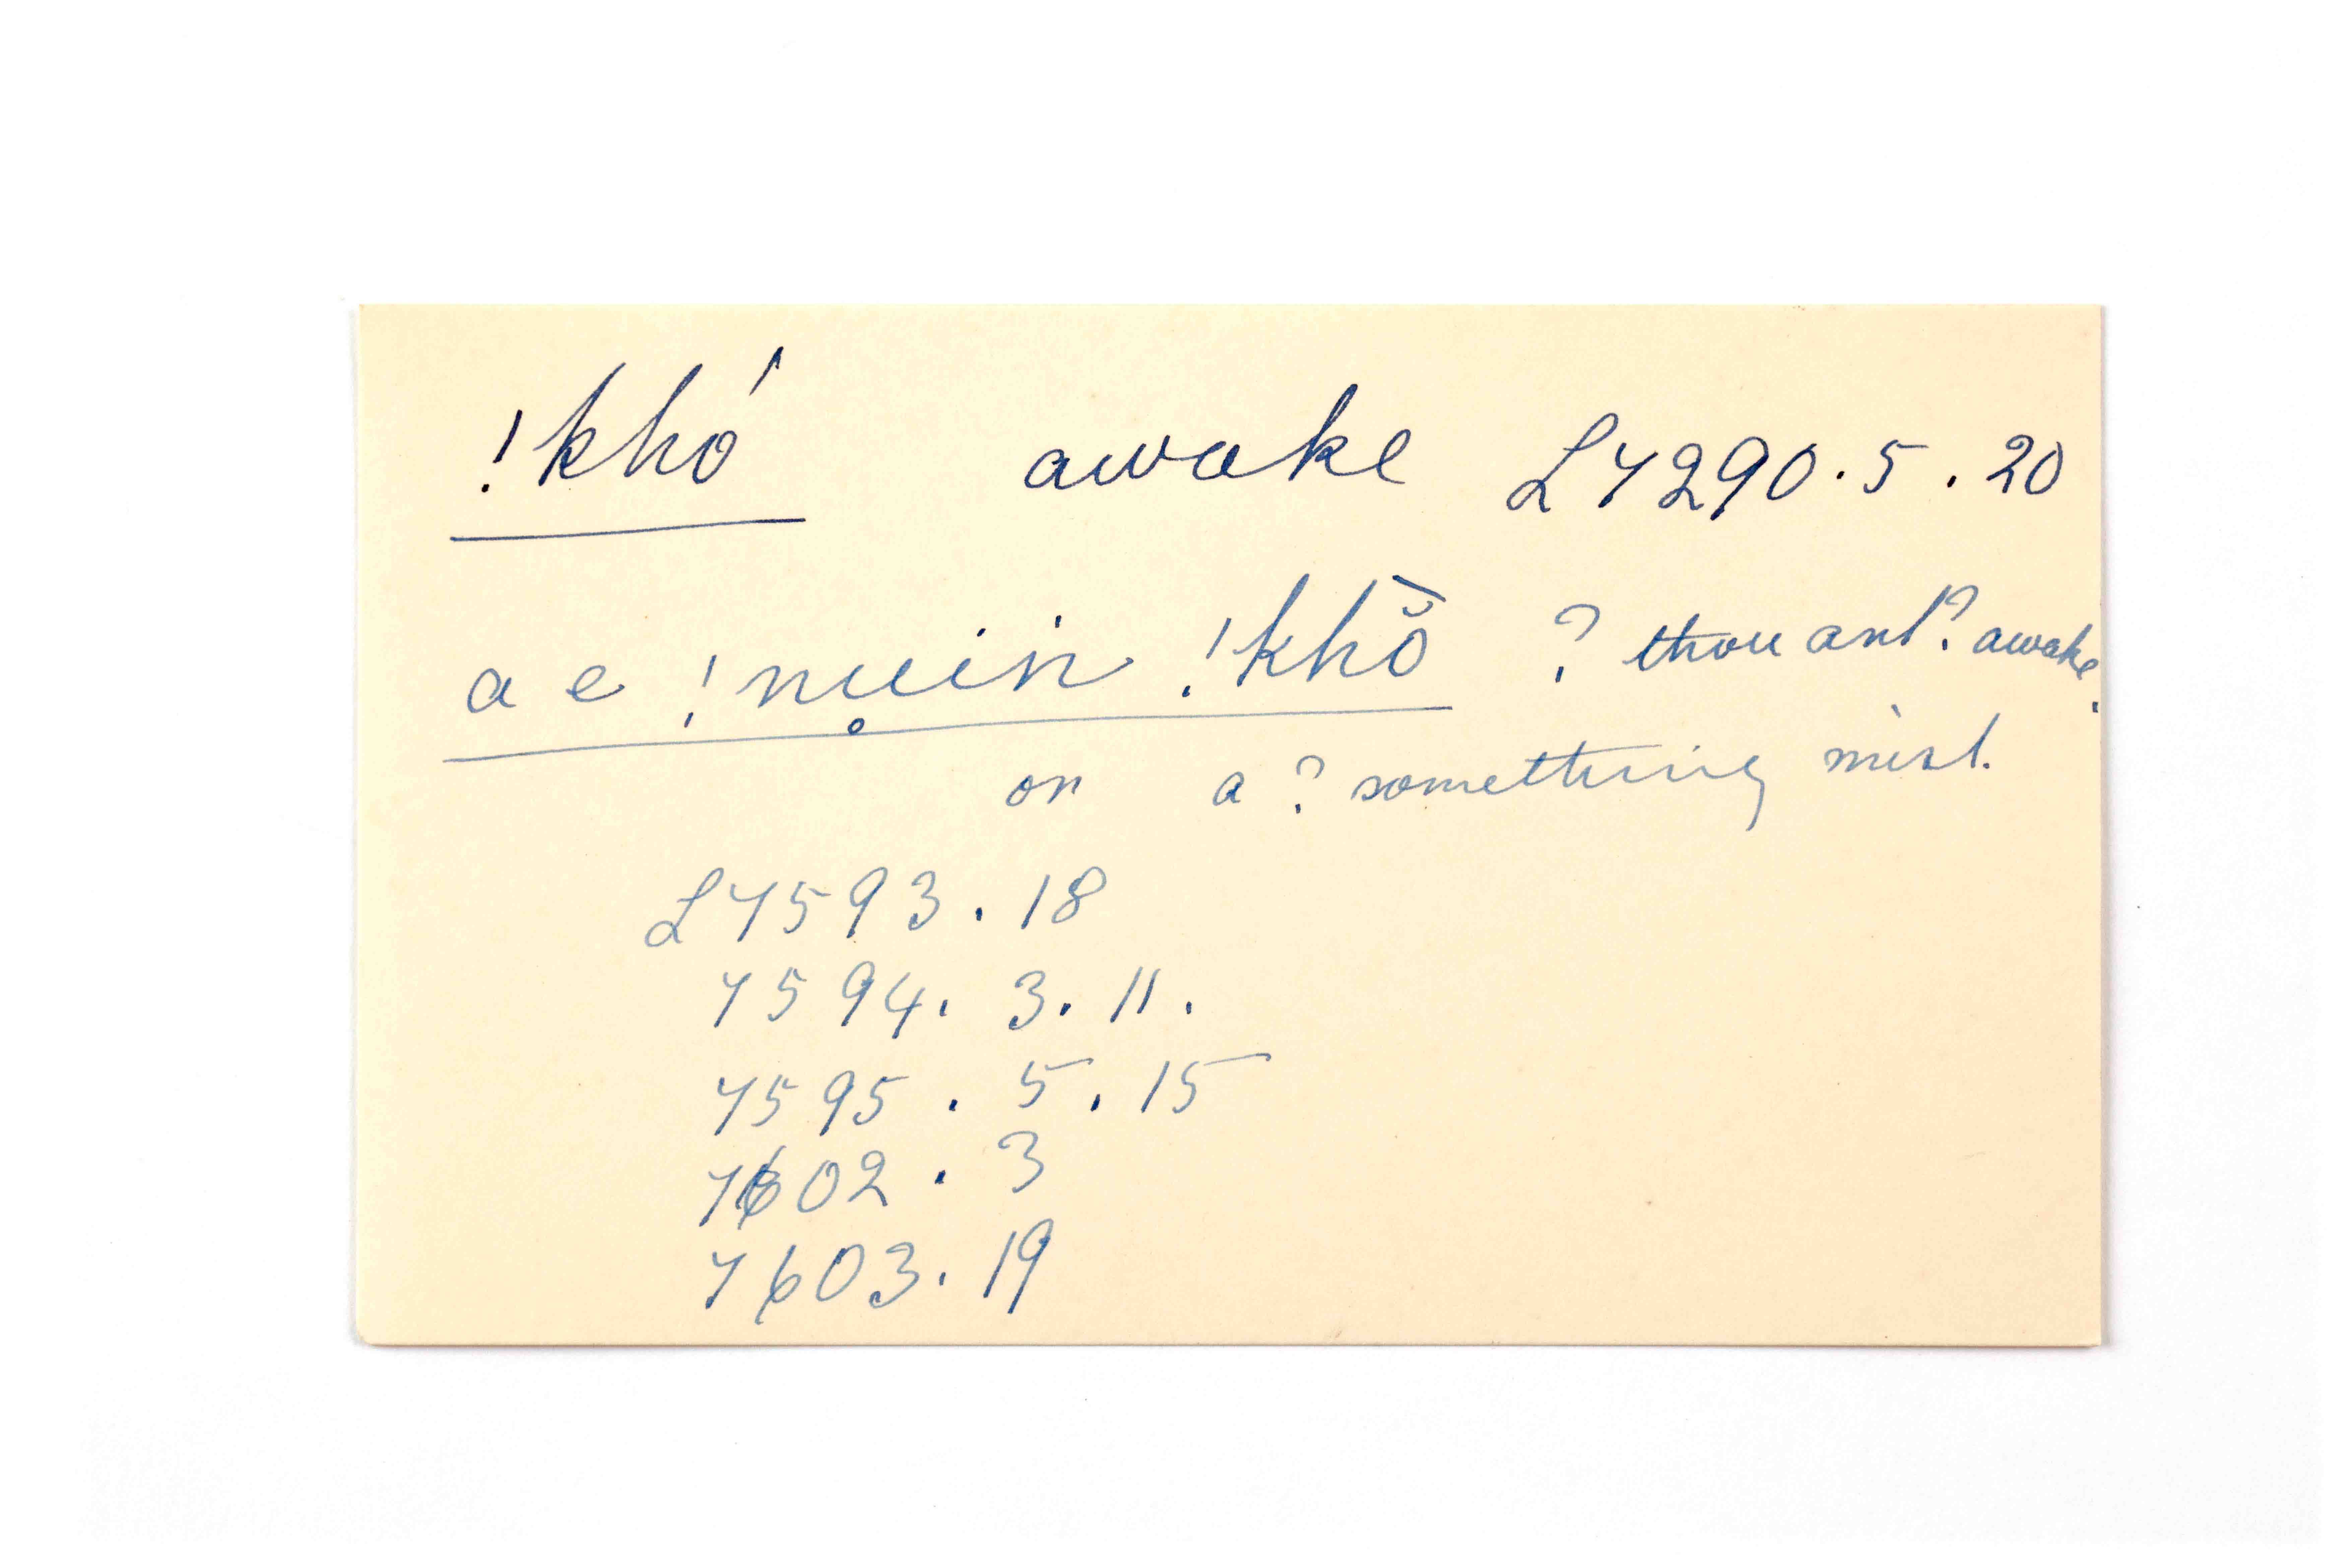 !khó awake L7290.5.20
a e !nu̥ein !khō̆ ? thou art? awake.
or a ? something mist.
L7593.18
7594. 3. 11.
7595. 5. 15
7602. 3
7603. 19